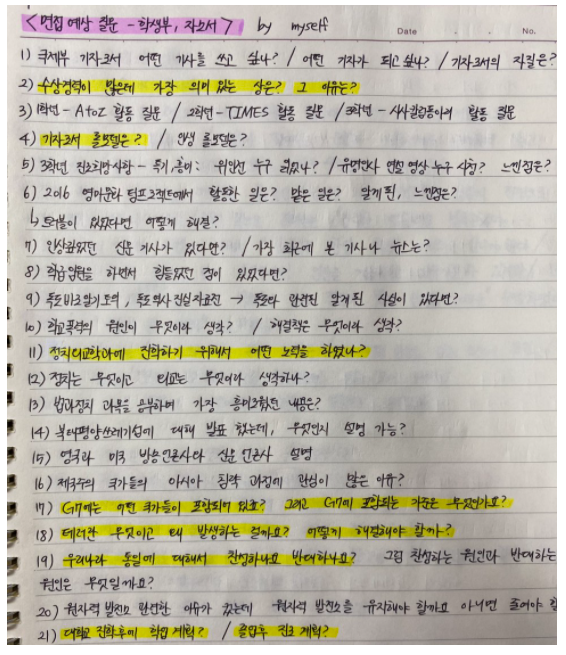 <면접 예상 질문 - 학생부, 자소서> by myself
Date No.
1) 국제부 기자로서 어떤 기사를 쓰고 싶나? / 어떤 기자가 되고 싶나? / 기자로서의 자질은?
2) 수상경력이 많은데 가장 의미 있는 상은? 그 이유는?
3) 1학년 - A to Z 활동 질문 / 2학년 - TIMES 활동 질문 / 3학년 - 시사칼럼동아리 활동 질문
4) 기자로서 롤모델은? / 인생 롤모델은?
5) 3학년 진로희망사항 - 특기 흥미: 위인전 누구 읽었나? / 유명인사 연설 영상 누구 시청? 느낀점은?
6) 2016 영어문화 팀프로젝트에서 활동한 일은? 맡은 일은? 알게 된, 느낀점은?
↳ 트러블이 있었다면 어떻게 해결?
7) 인상깊었던 신문 기사가 있다면? / 가장 최근에 본 기사나 뉴스는?
8) 학급임원을 하면서 힘들었던 점이 있었다면?
9) 독도바로알기도의, 독도역사진실자료전 → 독도와 관련된 알게 된 사실이 있다면?
10) 학교폭력의 원인이 무엇이라 생각? / 해결책은 무엇이라 생각?
11) 정치외교학과에 진학하기 위해서 어떤 노력을 하였나?
12) 정치는 무엇이고 외교는 무엇이라 생각하나?
13) 법과정치 과목을 공부하며 가장 흥미로웠던 내용은?
14) 북태평양쓰레기섬에 대해 발표 했는데, 무엇인지 설명 가능?
15) 영국과 미국 방송언론사와 신문 언론사 설명
16) 제국주의 국가들의 아시아 침략 과정에 관심이 많은 이유?
17) G7에는 어떤 국가들이 포함되어 있죠? 그리고 G7에 포함되는 기준은 무엇인가요?
18) 테러란 무엇이고 왜 발생하는 걸까요? 어떻게 해결해야 할까?
19) 우리나라 통일에 대해서 찬성하나요 반대하나요? 그럼 찬성하는 원인과 반대하는
원인은 무엇일까요?
20) 원자력 발전소 관련한 이유가 있는데 원자력 발전소를 유지해야 할까요 아니면 줄여야 할
21) 대학교 진학후에 학업 계획? / 졸업후 진로 계획?